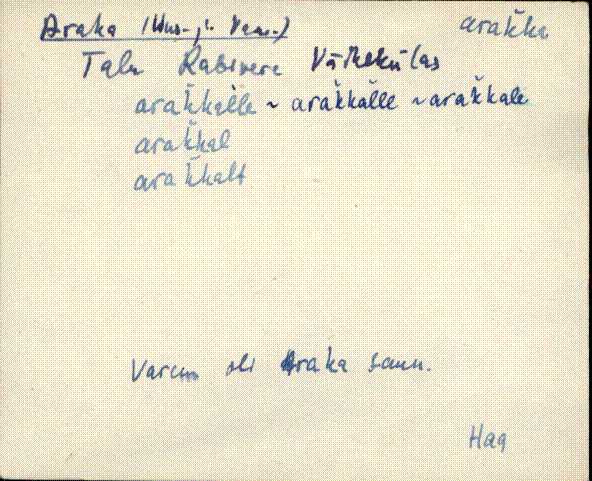 Araka (Uus- ja Vana-) arak̆ka
Talu Rabivere Väikekülas
arak̆kalle ~ arak̆kàlle ~ arak̆kale
arak̆kal
arak̆kalt
Varem oli Araka saun.
Hag